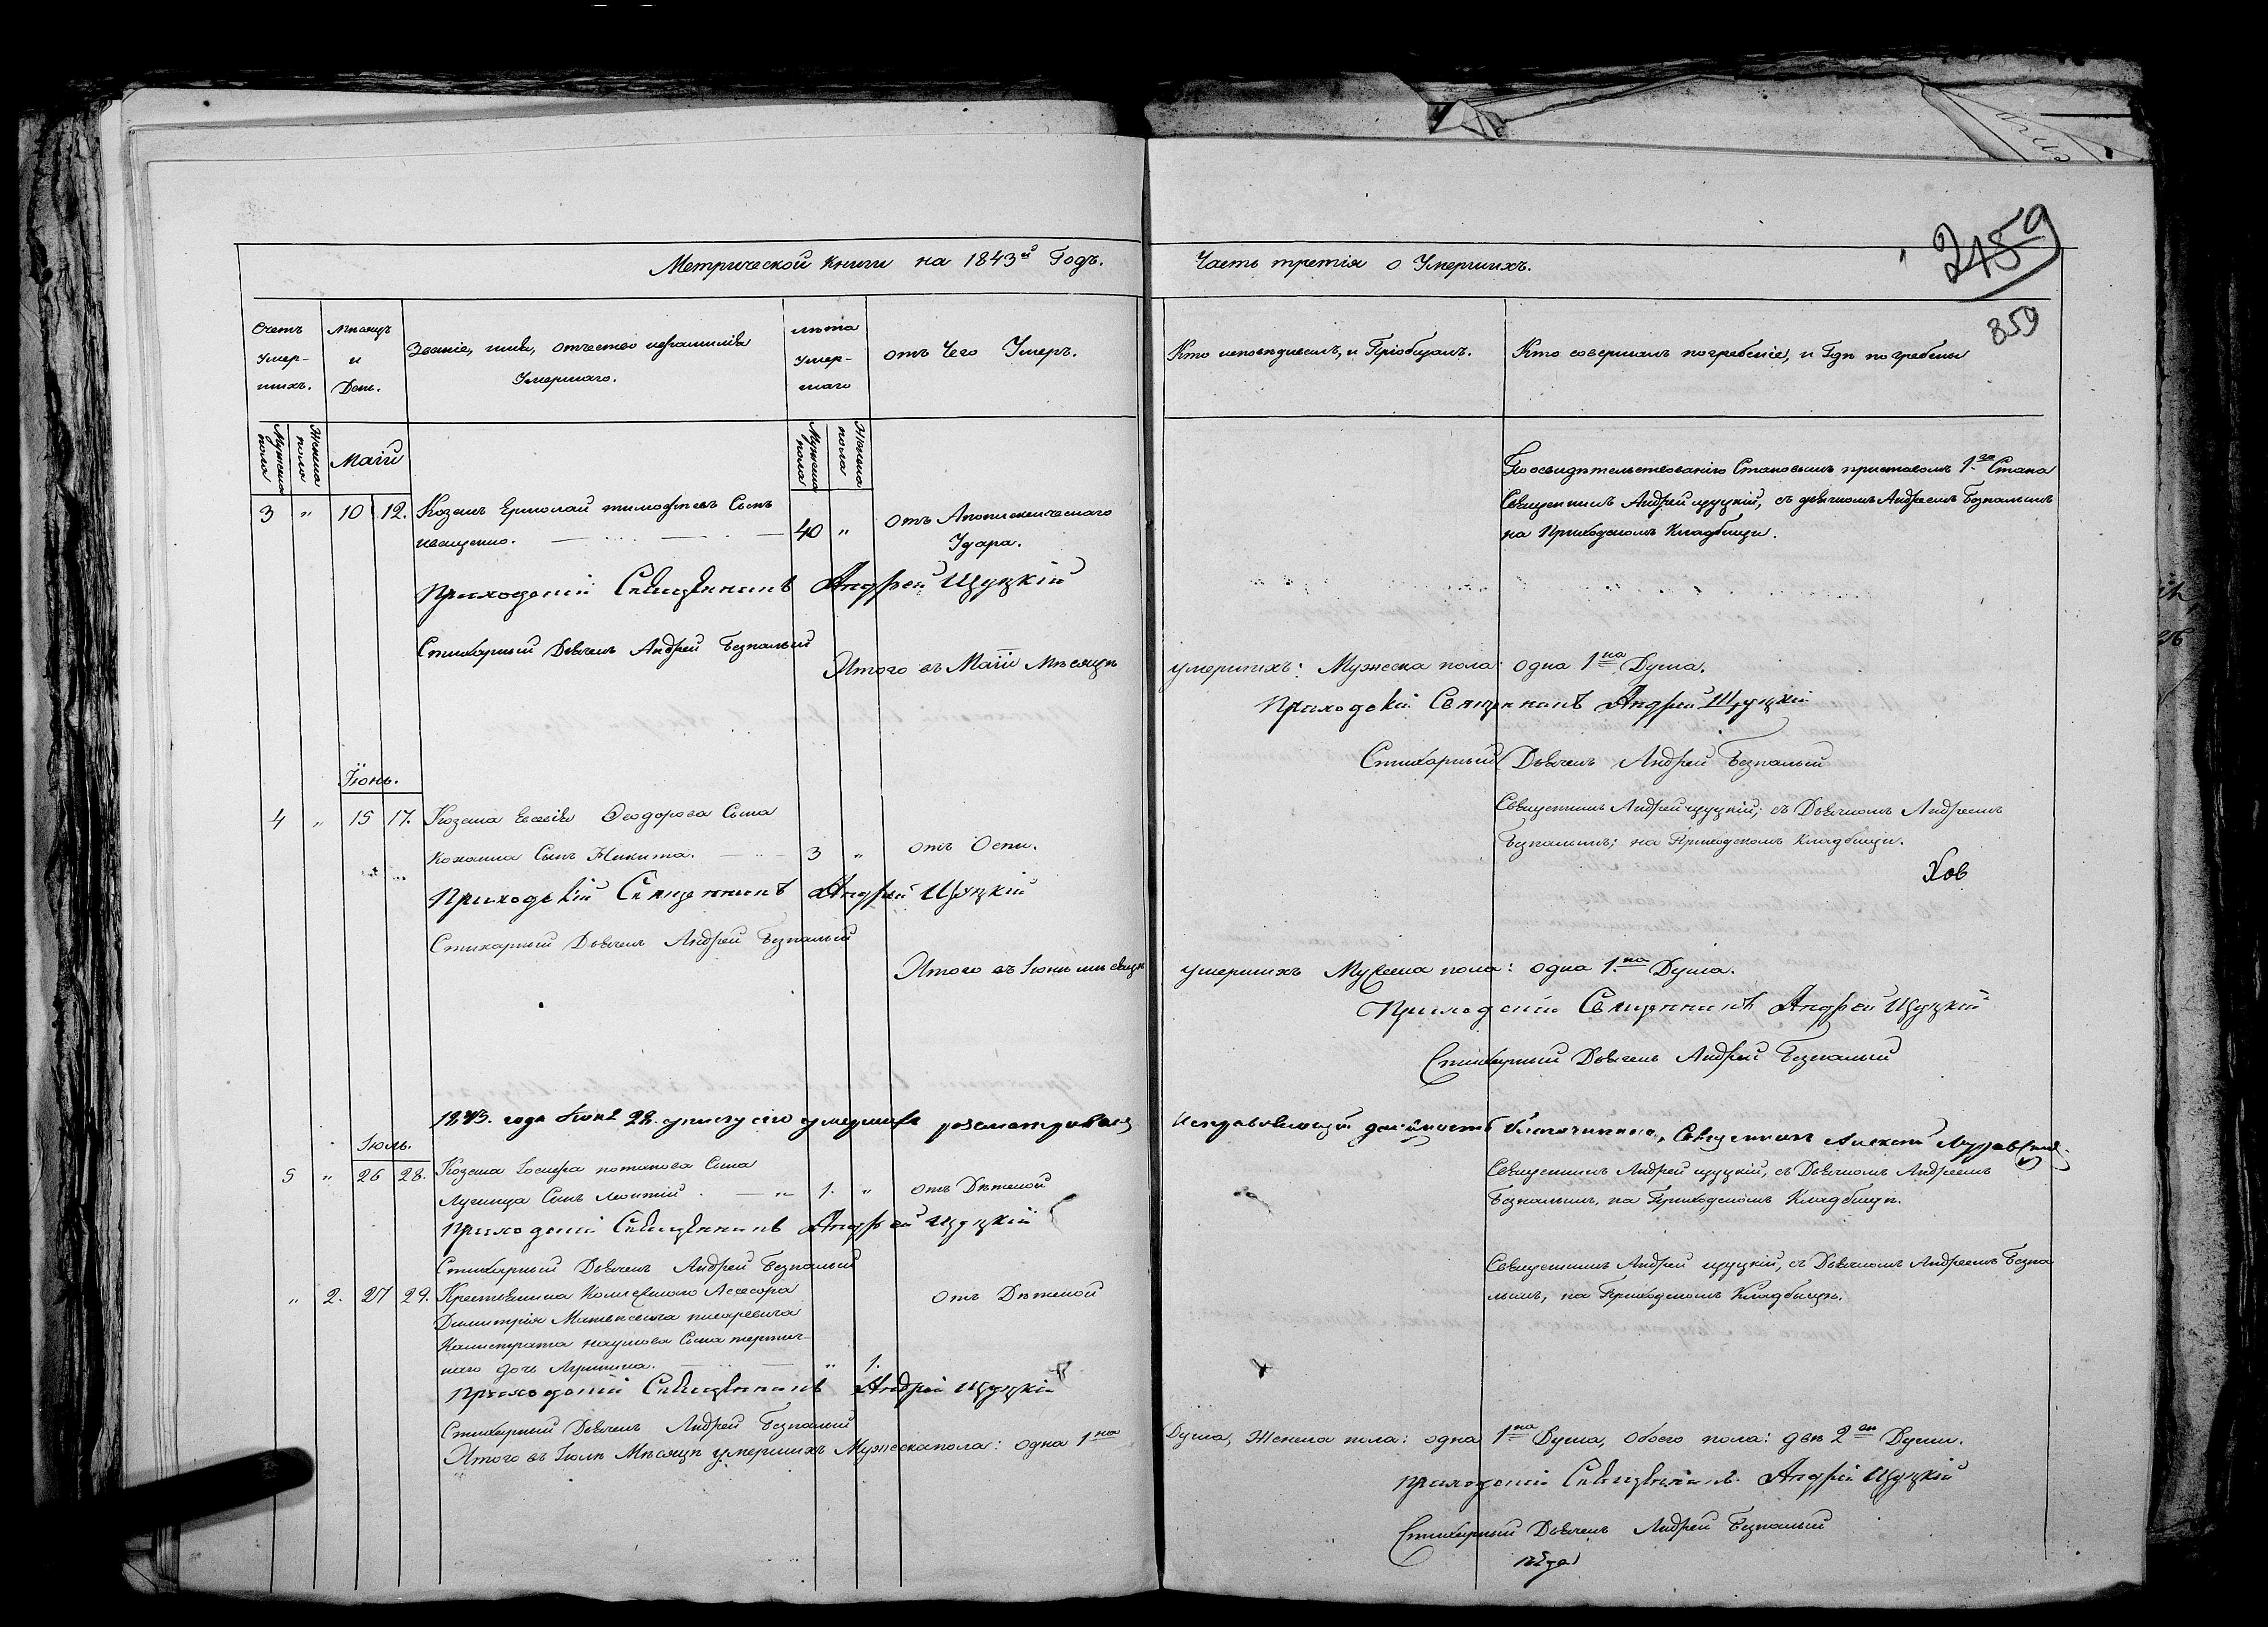 Метрической книги на 1843й Годъ.
Часть третія о Умершихъ.
2459
359
Счетъ Умер-шихъ.
Мѣсяцъ и День.
Званіе, имя, отчество и фамилія Умершаго.
лѣта Умер-шаго
отъ Чего Умеръ.
Кто исповѣдывалъ, и Пріобщалъ.
Кто совершалъ погребеніе, и Гдѣ погребены
Мужеска пола
Женска пола
Маій
Мужеска пола
Женска пола
3 " 10 12. Козакъ Ермолай тимофеевъ Сынъ
40 " отъ Апоплексическаго
Удара.
По освидѣтельствованію Становымъ приставомъ 1го Стана
Священникъ Андрей щуцкій, съ дьячкомъ Андреемъ Безпалымъ
на Приходскомъ Кладбищи.
Приходскій Священникъ Андрей Щуцкій
Стихарный Дьячекъ Андрей Безпалый
Итого въ Маіи Мѣсяцѣ
умершихъ: Мужеска пола: одна 1на Душа.
Приходскій Священникъ Андрей Щуцкій
Стихарный Дьячекъ Андрей Безпалый
Іюнь.
4 " 15 17. Козака Евсевія Ѳеодорова Сына
Сынъ Никита. 3 " отъ Оспи.
Священникъ Андрей щуцкій; съ Дьячкомъ Андреемъ
Безпалымъ; на Приходскомъ Кладбищи.
Приходскій Священникъ Андрей Щуцкій
Стихарный Дьячекъ Андрей Безпалый
Итого въ Іюнѣ мѣсяцѣ
умершихъ Мужеска пола: одна 1на Душа.
Приходскій Священникъ Андрей Щуцкій
Стихарный Дьячекъ Андрей Безпалый
1843. года Іюня 28. сію умершихъ разсматривалъ
Исправляющій должность благочиннаго, Священникъ Алексей
Іюль.
5 " 26 28. Козака Іосифа потапова Сына
Сынъ Леонтій. 1. " отъ Дѣтской
Священникъ Андрей щуцкій, съ Дьячкомъ Андреемъ
Безпалымъ, на Приходскомъ Кладбищѣ.
Приходскій Священникъ Андрей Щуцкій
Стихарный Дьячекъ Андрей Безпалый
" 2. 27 29. Крестьянина Колежскаго Асесора
Димитрія Матвѣевича
Калистрата наумова Сына
дочь " 1.
отъ Дѣтской
Священникъ Андрей щуцкій, съ Дьячкомъ Андреемъ Безпа
лымъ, на Приходскомъ Кладбищѣ.
Приходскій Священникъ Андрей Щуцкій
Стихарный Дьячекъ Андрей Безпалый
Итого въ Іюлѣ Мѣсяцѣ умершихъ Мужеска пола: одна 1на
Душа, Женска пола: одна 1на Душа, Обоего пола: двѣ 2ѣ Души.
Приходскій Священникъ Андрей Щуцкій
Стихарный Дьячекъ Андрей Безпалый